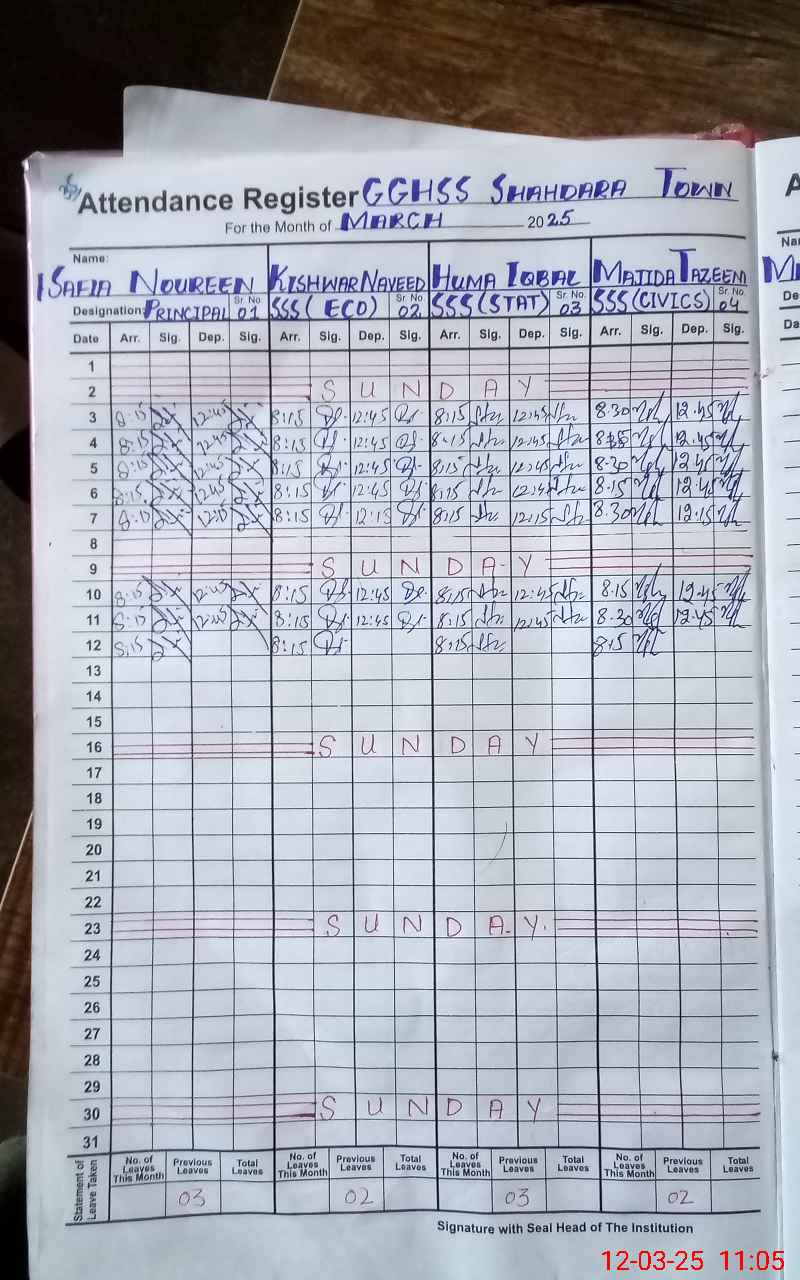 Attendance Register GGHSS SHAHDARA TOWN
For the Month of MARCH 2025
Name:
SAFIA NOUREEN KISHWAR NAVEED HUMA IQBAL MAJIDA TAZEEM
Designation: PRINCIPAL Sr. No. 01 SSS (ECO) Sr. No. 02 SSS (STAT) Sr. No. 03 SSS (CIVICS) Sr. No. 04
Date Arr. Sig. Dep. Sig. Arr. Sig. Dep. Sig. Arr. Sig. Dep. Sig. Arr. Sig. Dep. Sig.
1
2 SUNDAY
3 8:15 12:45 8:15 12:45 8:15 12:45 8.30 12.45
4 8:15 12:45 8:15 12:45 8:15 12:45 12.45
5 8:15 12:45 8:15 12:45 8:15 12:45 8.30 12.45
6 8:15 12:45 8:15 12:45 8:15 12:45 8.15 12.45
7 8:15 8:15 12:15 8:15 12:15 8.30 12.15
8
9 SUNDAY
10 8:15 12:45 8:15 12:45 8:15 12:45 8.15 12.45
11 8:15 12:45 8:15 12:45 8:15 12:45 8.30 12.45
12 8:15 8:15 8:15 8.15
13
14
15
16 SUNDAY
17
18
19
20
21
22
23 SUNDAY
24
25
26
27
28
29
30 SUNDAY
31
Statement of Leave Taken No. of Leaves This Month Previous Leaves Total Leaves No. of Leaves This Month Previous Leaves Total Leaves No. of Leaves This Month Previous Leaves Total Leaves No. of Leaves This Month Previous Leaves Total Leaves
03 02 03 02
Signature with Seal Head of The Institution
12-03-25 11:05